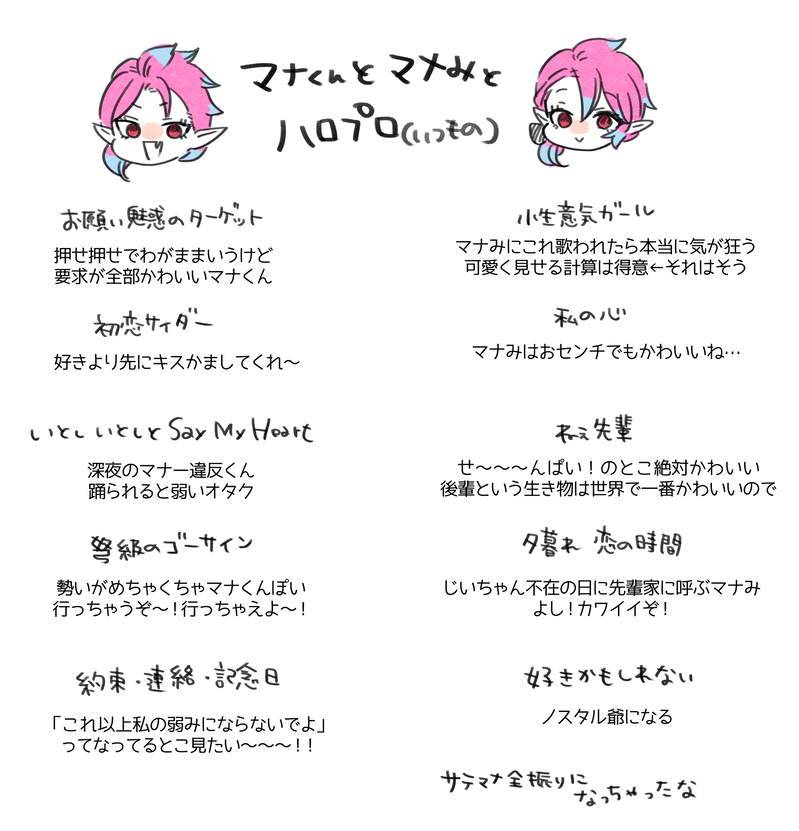 マナくんと マナみと
ハロプロ(いつもの)
お願い魅惑のターゲット
押せ押せでわがままいうけど
要求が全部かわいいマナくん
初恋サイダー
好きより先にキスかましてくれ〜
いとし いとしと Say My Heart
深夜のマナー違反くん
踊られると弱いオタク
弩級のゴーサイン
勢いがめちゃくちゃマナくんぽい
行っちゃうぞ〜!行っちゃえよ〜!
約束・連絡・記念日
「これ以上私の弱みにならないでよ」
ってなってるとこ見たい〜〜〜!!
小生意気ガール
マナみにこれ歌われたら本当に気が狂う
可愛く見せる計算は得意←それはそう
私の心
マナみはおセンチでもかわいいね…
ねぇ先輩
せ〜〜〜んぱい!のとこ絶対かわいい
後輩という生き物は世界で一番かわいいので
夕暮れ 恋の時間
じいちゃん不在の日に先輩家に呼ぶマナみ
よし!カワイイぞ!
好きかもしれない
ノスタル爺になる
サテマナ全振りに
なっちゃったな